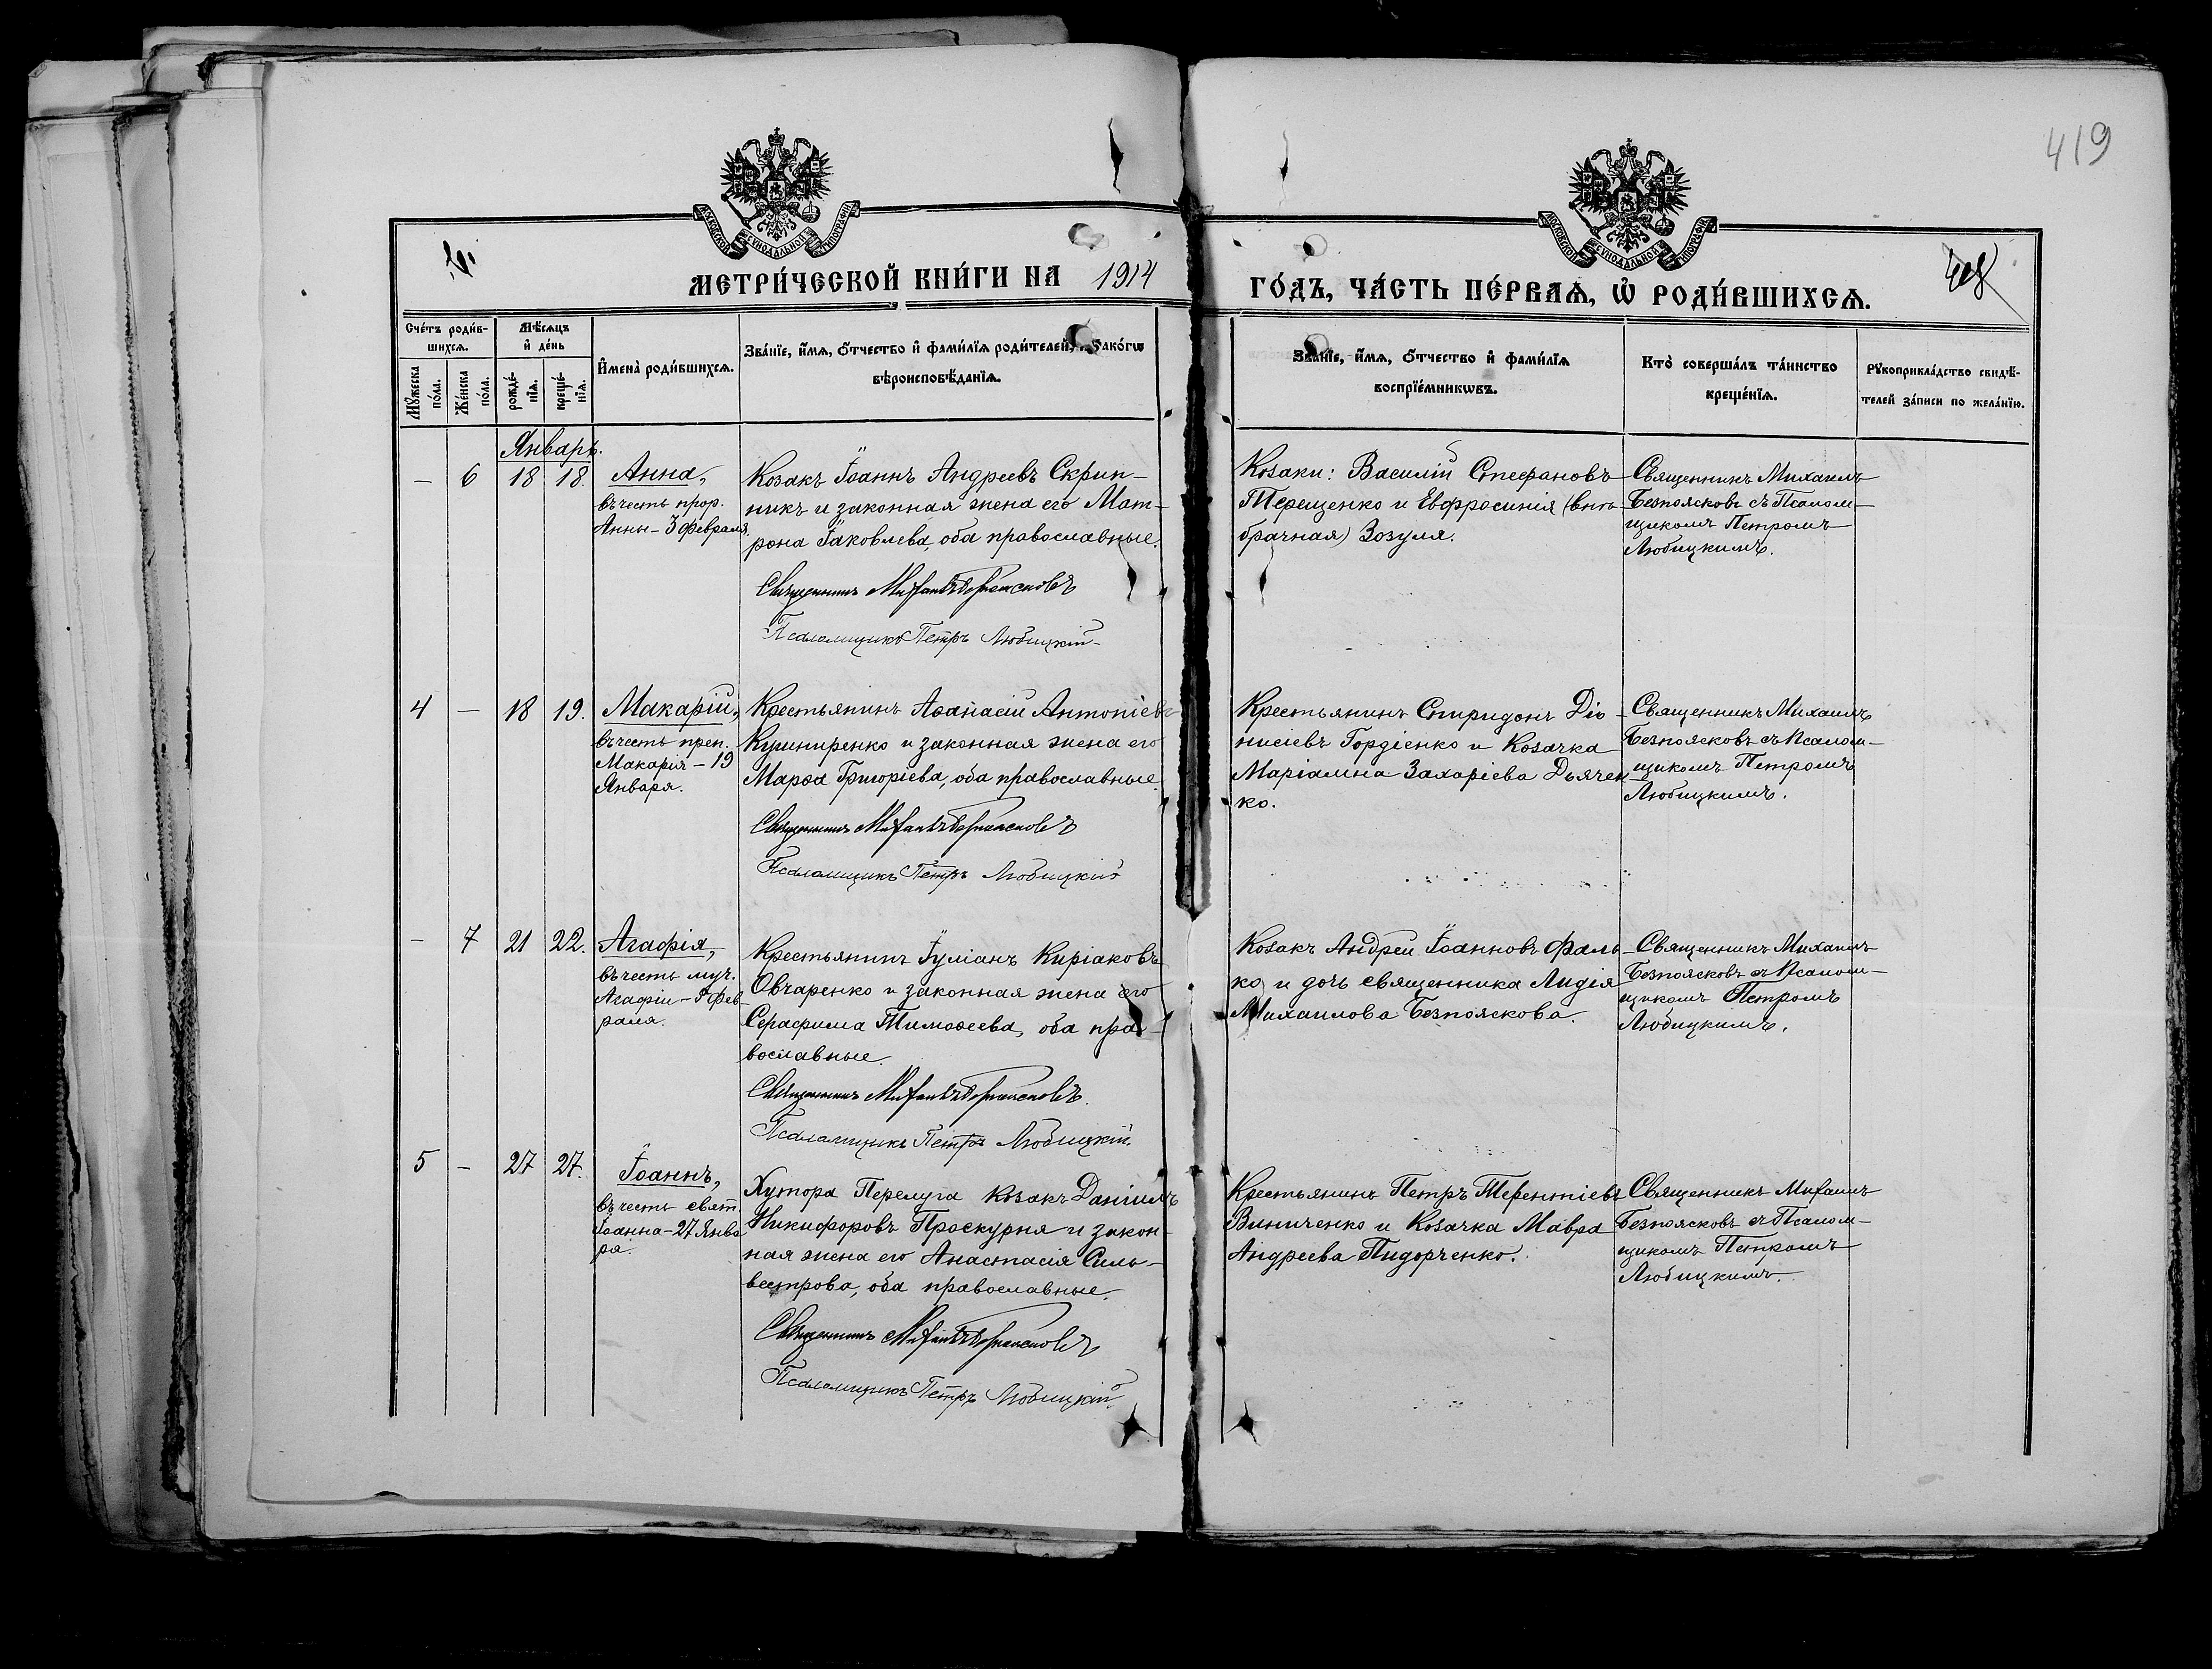 419
МОСКОВСКОЙ СѴНОДАЛЬНОЙ ТИПОГРАФІИ
МОСКОВСКОЙ СѴНОДАЛЬНОЙ ТИПОГРАФІИ
МЕТРИ́ЧЕСКОЙ КНИ́ГИ НА 1914
ГО́ДЪ, ЧА́СТЬ ПЕ́РВАѦ, Ѡ҆ РОДИ́ВШИХСѦ.
Сче́тъ роди́в-
шихсѧ.
Мѣ́сѧцъ
и҆ де́нь
Мꙋ́жеска
по́ла.
Же́нска
по́ла.
рожде́-
нїѧ.
креще́-
нїѧ.
И҆мена̀ роди́вшихсѧ.
Зва́нїе, и҆́мѧ, ѻ҆́тчество и҆ фами́лїѧ роди́телей, и҆ како́гѡ
вѣроисповѣ́данїѧ.
Зва́нїе, и҆́мѧ, ѻ҆́тчество и҆ фами́лїѧ
воспрїе́мникѡвъ.
Кто̀ соверша́лъ та́инство
креще́нїѧ.
Рꙋкоприкла́дство свидѣ́-
телей за́писи по жела́нїю.
Январь.
— 6 18 18.
Анна,
въ честь прор.
Анны - 3 февраля.
Козакъ Іоаннъ Андреевъ Скрип-
никъ и законная жена его Мат-
рона Іаковлева, оба православные.
Священникъ Михаилъ Безпоясковъ
Псаломщикъ Петръ Любицкій
Козаки: Василій Стефановъ
Терещенко и Евфросинія (внѣ-
брачная) Зозуля.
Священникъ Михаилъ
Безпоясковъ съ Псалом-
щикомъ Петромъ
Любицкимъ.
4 — 18 19.
Макарій,
въ честь преп.
Макарія - 19
Января.
Крестьянинъ Аѳанасій Антоніевъ
Кушниренко и законная жена его
Марѳа Григоріева, оба православные.
Священникъ Михаилъ Безпоясковъ
Псаломщикъ Петръ Любицкій
Крестьянинъ Спиридонъ Діо-
нисіевъ Гордіенко и Козачка
Маріамна Захаріева Дьячен-
ко.
Священникъ Михаилъ
Безпоясковъ съ Псалом-
щикомъ Петромъ
Любицкимъ.
— 7 21 22.
Агафія,
въ честь муч.
Агафіи - 5 Фев-
раля.
Крестьянинъ Іуліанъ Киріаковъ
Овчаренко и законная жена его
Серафима Тимоѳеева, оба пра-
вославные.
Священникъ Михаилъ Безпоясковъ.
Псаломщикъ Петръ Любицкій.
Козакъ Андрей Іоанновъ Фаль-
ко и дочь священника Лидія
Михаилова Безпояскова.
Священникъ Михаилъ
Безпоясковъ съ Псалом-
щикомъ Петромъ
Любицкимъ.
5 — 27 27.
Іоаннъ,
въ честь свят.
Іоанна - 27 Янва
ря.
Хутора Перелуга козакъ Даніилъ
Никифоровъ Проскурня и закон-
ная жена его Анастасія Силь-
вестрова, оба православные.
Священникъ Михаилъ Безпоясковъ
Псаломщикъ Петръ Любицкій
Крестьянинъ Петръ Терентіевъ
Винниченко и Козачка Мавра
Андреева Пидорченко.
Священникъ Михаилъ
Безпоясковъ съ Псалом-
щикомъ Петромъ
Любицкимъ.